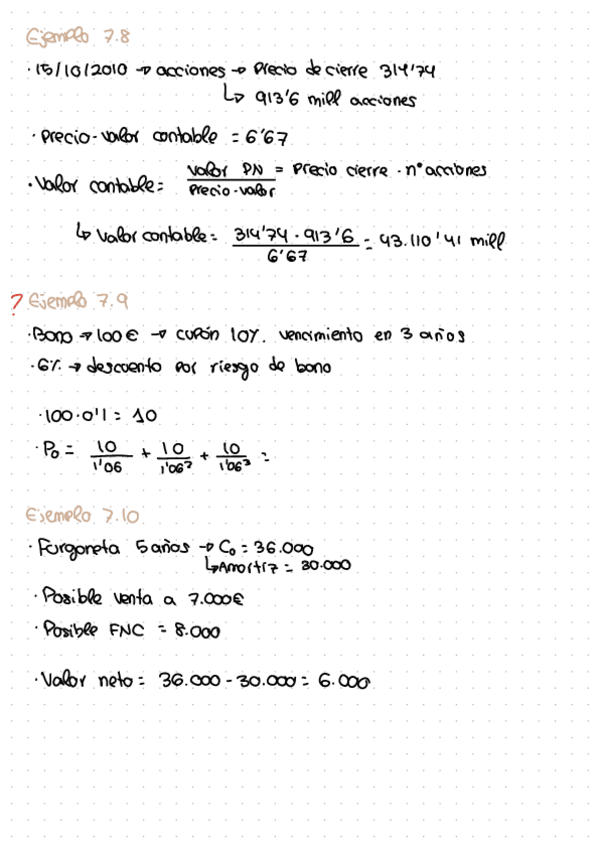 Ejemplo 7.8
· 15/10/2010 → acciones → Precio de cierre 314'74
↳ 913'6 mill acciones
· Precio-valor contable = 6'67
· Valor contable = valor PN = Precio cierre · nº acciones
Precio-valor
↳ Valor contable = 314'74 · 913'6 = 43.110'41 mill
6'67
? Ejemplo 7.9
· Bono → 100€ → cupón 10%. vencimiento en 3 años
· 6% → descuento por riesgo de bono
· 100·0'1 = 10
· P₀ = 10/1'06 + 10/1'06² + 10/1'06³ =
Ejemplo 7.10
· Furgoneta 5 años → C₀ = 36.000
↳ Amortiz = 30.000
· Posible venta a 7.000€
· Posible FNC = 8.000
· Valor neto = 36.000 - 30.000 = 6.000